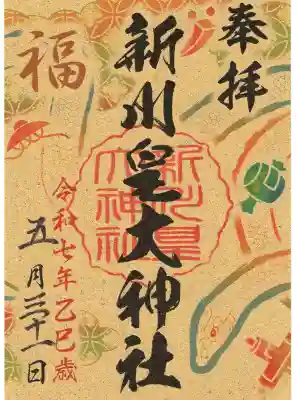 奉拝
新川皇大神社
福
令和七年乙巳歳
五月三十一日
新川皇
大神社